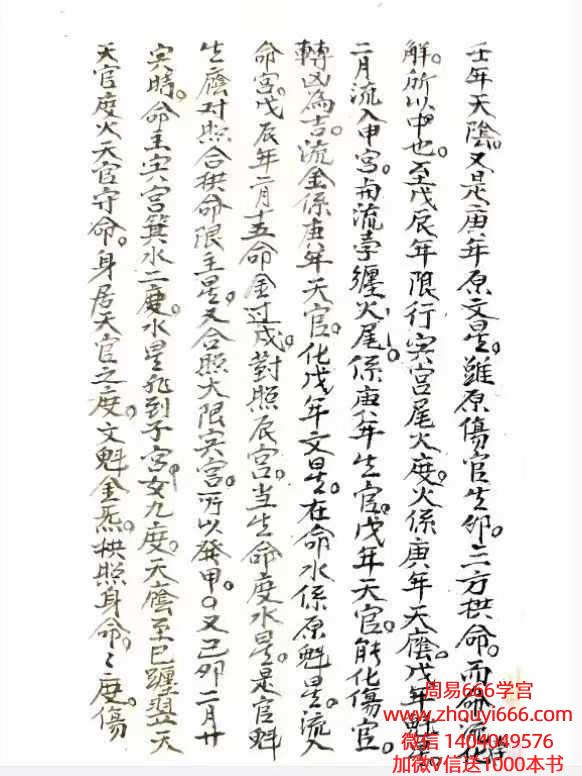 壬年天陰。又是庚年原文星。雖原傷官生卯。三方拱命。而命流化
解。所以中也。至戊辰年限行寅宮尾火度。火係庚年天廕戊年魁星
二月流入申宮。與流孛纏火尾。係庚年生官。戊年天官。能化傷官。
轉凶為吉。流金係庚年天官。化戊年文星。在命水係原魁星。流入
命宮。戊辰年二月十五命金过戍。對照辰宮。当生命度水星。是官魁
生廕对照合拱命限主星。又合照大限寅宮。所以癸甲。又己卯二月廿
寅時。命主寅宮箕水二度。水星飛到子宮女九度。天廕至巳躔翌天
天官度火天官守命。身居天官之度。文魁金炁。拱照身命。〻度傷
周易666学宫
www.zhouyi666.com
微信 1404049576
加微V信送1000本书